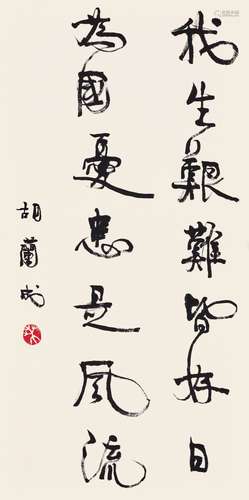 我生艱難皆好日
為國憂患是風流
胡蘭成